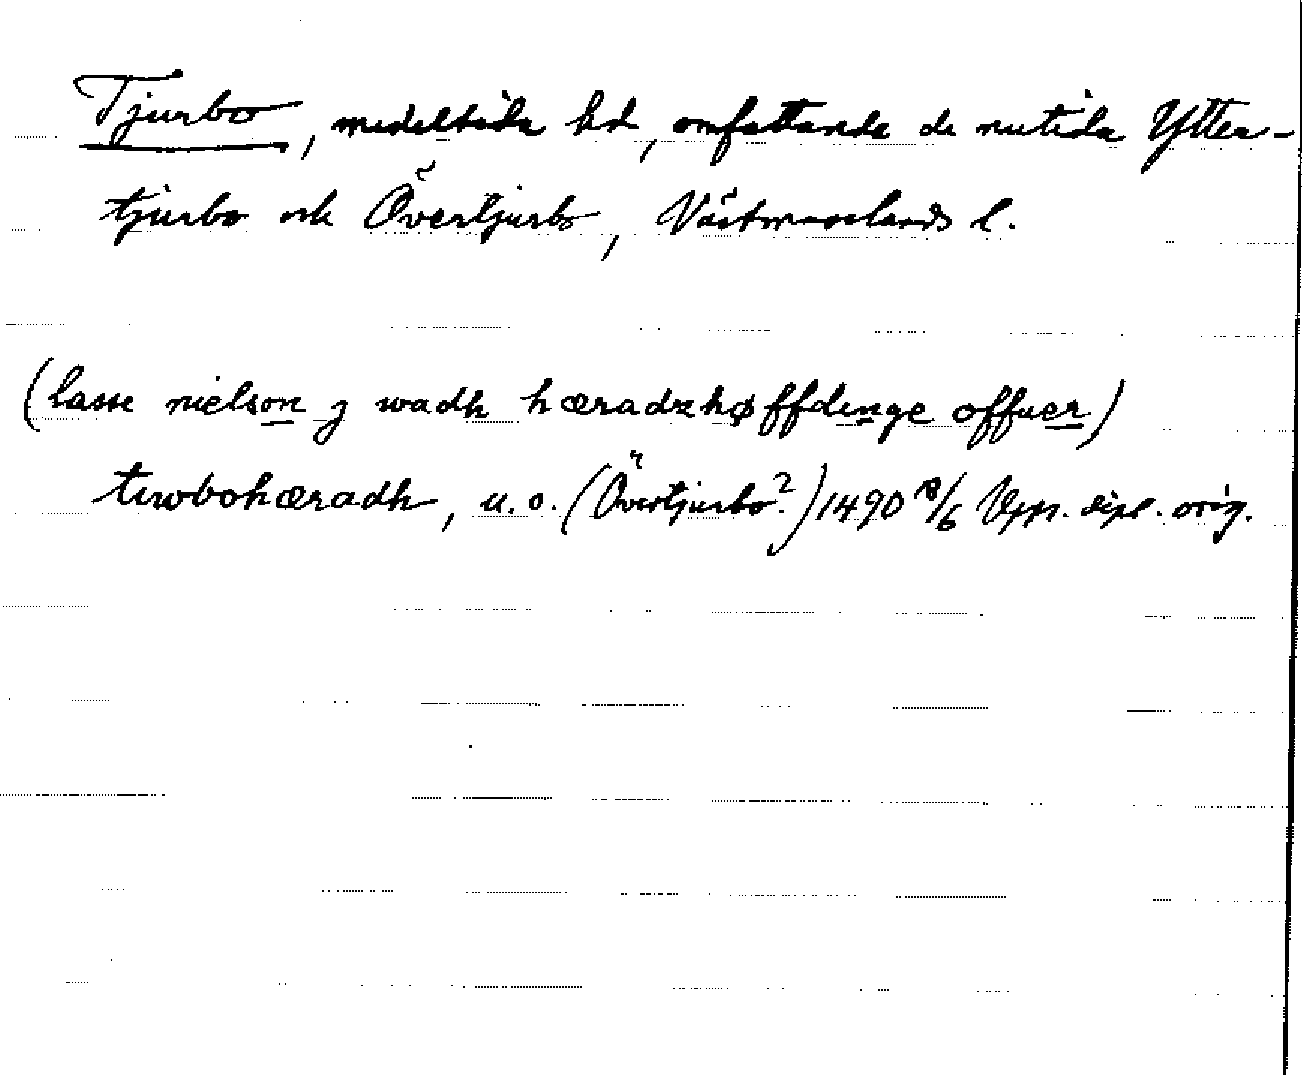 Tjurbo, medeltida hd, omfattande de nutida Ytter-
tjurbo och Övertjurbo, Västmanlands l.
(lasse nielson j wadh hæradzhøffdinge offuer)
tiwbohæradh, u.o. (Övertjurbo?) 1490 18/6 Upps. dipl. orig.